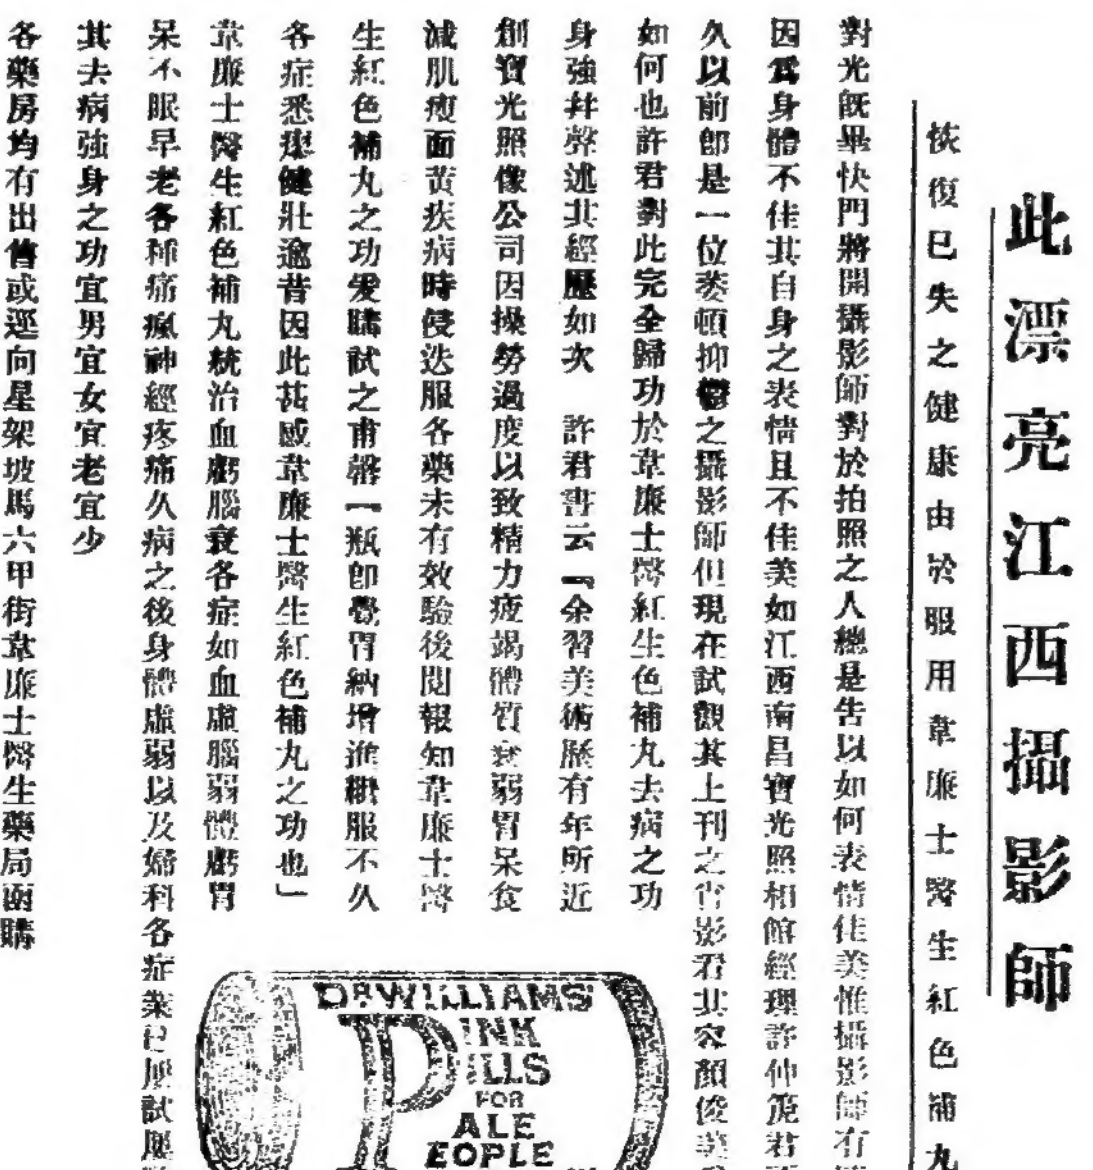 此漂亮江西攝影師
恢復已失之健康由於服用韋廉士醫生紅色補丸
對光既畢快門將開攝影師對於拍照之人總是告以如何表情佳美惟攝影師有
因爲身體不佳其自身之表情且不佳美如江西南昌寶光照相館經理許仲箎君
久以前卽是一位萎頓抑鬱之攝影師但現在試觀其上刊之肖影君其容顏俊美
如何也許君對此完全歸功於韋廉士醫紅生色補丸去病之功
身強幷聲述其經歷如次 許君書云『余習美術歷有年所近
創寶光照像公司因操勞過度以致精力疲竭體質衰弱胃呆食
減肌瘦面黃疾病時侵迭服各藥未有效驗後閱報知韋廉士醫
生紅色補丸之功爰購試之甫罄一瓶卽覺胃納增進繼服不久
各症悉痊健壯逾昔因此甚感韋廉士醫生紅色補丸之功也」
韋廉士醫生紅色補丸統治血虧腦衰各症如血虛腦弱體虧胃
呆不眠早老各種痛瘋神經疼痛久病之後身體虛弱以及婦科各症業已屢試屢
其去病強身之功宜男宜女宜老宜少
各藥房均有出售或逕向星架坡馬六甲街韋廉士醫生藥局函購
DR WILLIAMS'
PINK
PILLS
FOR
PALE
PEOPLE